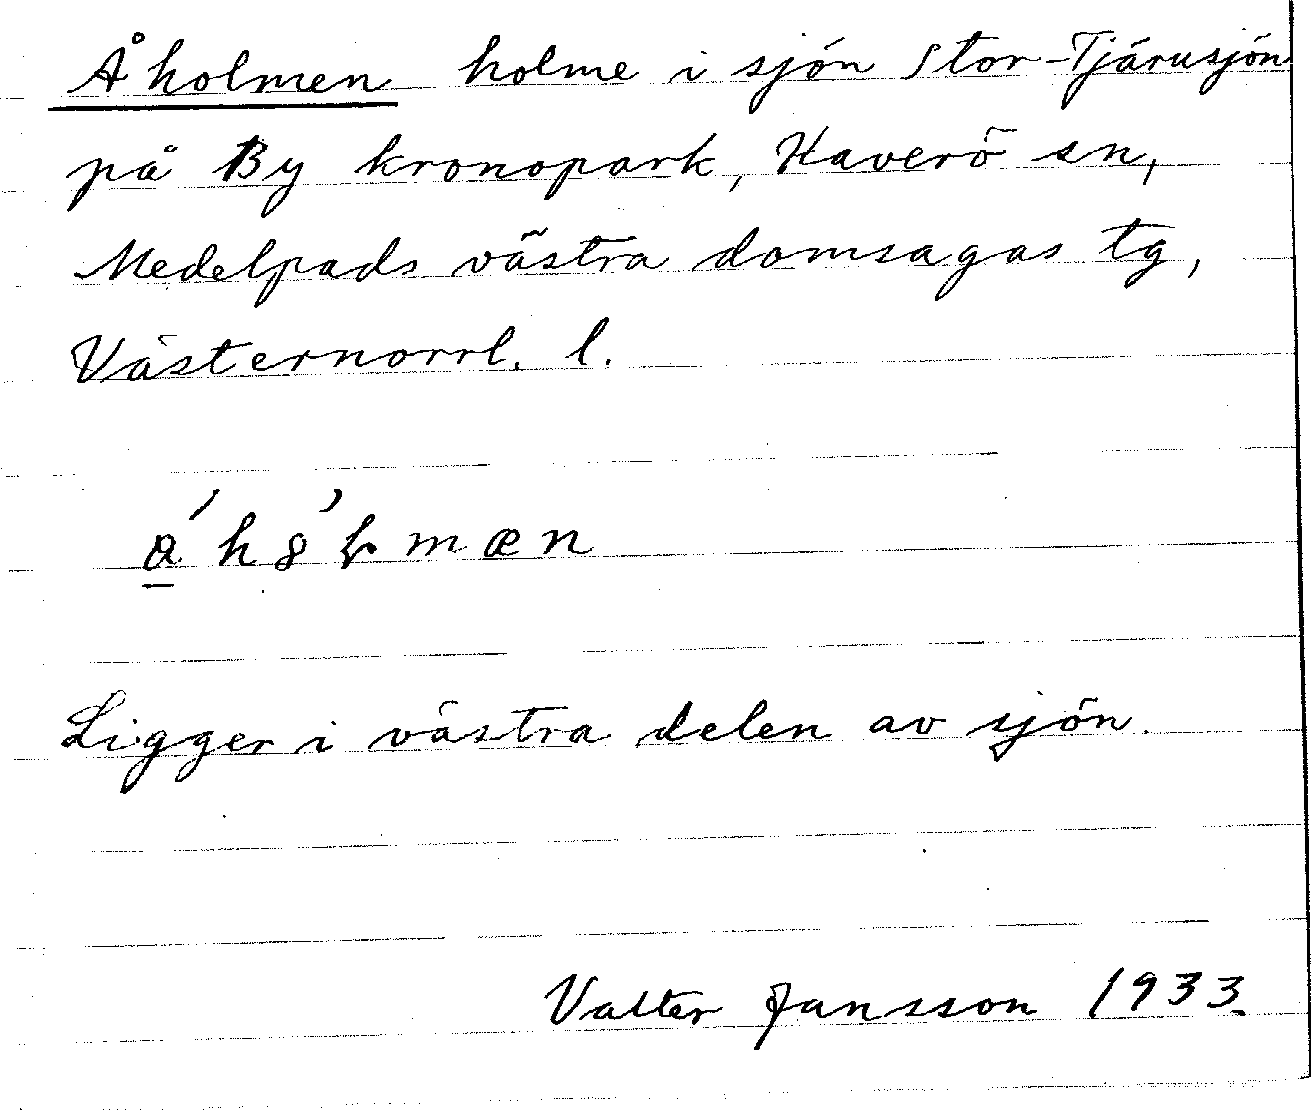 Åholmen holme i sjön Stor-Tjärusjön
på By kronopark, Haverö sn,
Medelpads västra domsagas tg,
Västernorrl. l.
Ligger i västra delen av sjön.
Valter Jansson 1933.